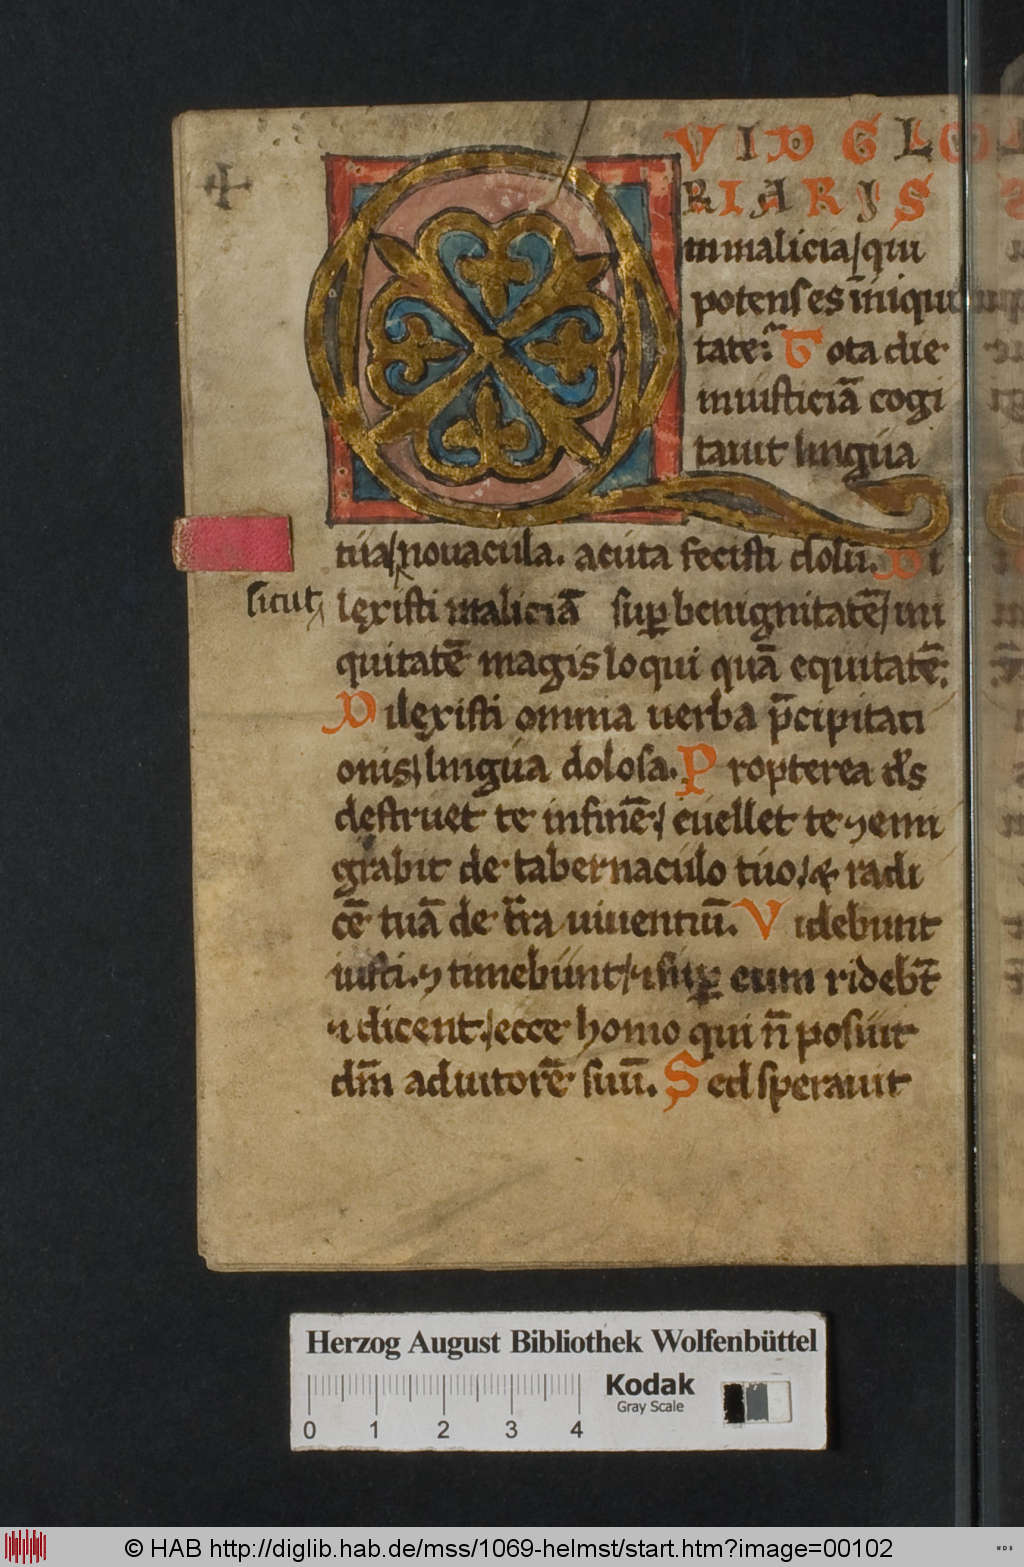 QVID GLO
RIARIS
in malicia / qui
potens es īniqui
tate. Tota die
iniusticiā cogi
tauit lingua
tua / nouacula. acuta fecisti dolū. Di
sicut
lexisti maliciā sup benignitatē / ini
quitatē magis loqui quā equitatē.
Dilexisti omnia uerba p̄cipitati
onis / lingua dolosa. Propterea ds
destruet te infinē / euellet te ⁊ emi
grabit de tabernaculo tuo / & radi
cē tuā de t̄ra uiuentiū. Videbunt
iusti. ⁊ timebunt / ⁊ sup eum ridebt̄
⁊ dicent. / ecce homo qui n̄ posuit
dm̄ adiutorē suū. Sed sperauit
Herzog August Bibliothek Wolfenbüttel
Kodak
Gray Scale
0 1 2 3 4
© HAB http://diglib.hab.de/mss/1069-helmst/start.htm?image=00102